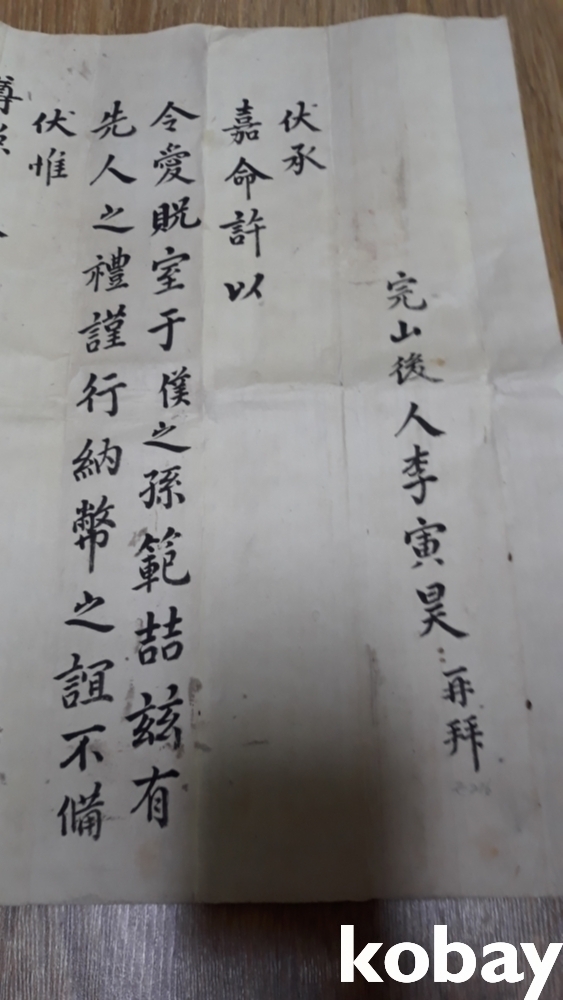 完山後人李寅昊再拜
伏承
嘉命許以
令愛貺室于僕之孫範喆玆有
先人之禮謹行納幣之誼不備
伏惟
尊
kobay